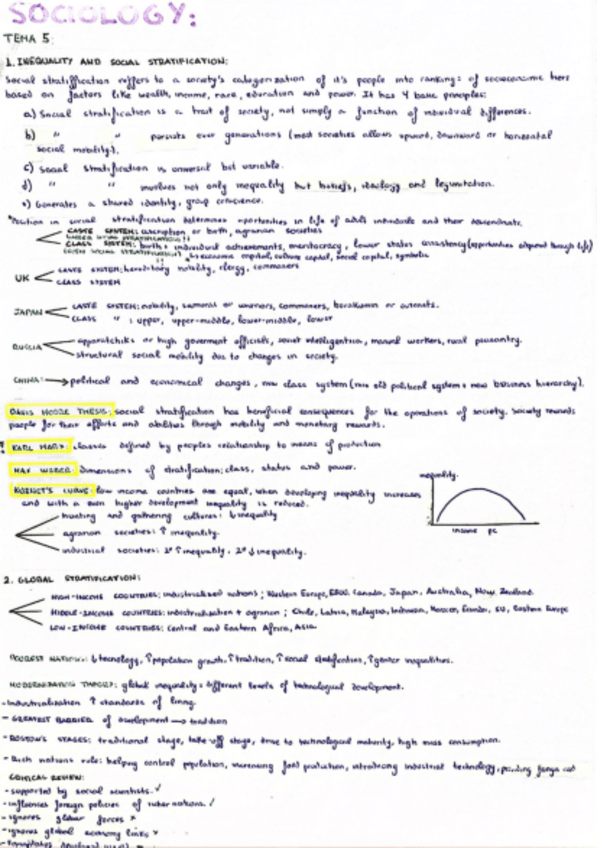 SOCIOLOGY:
TEMA 5:
1. INEQUALITY AND SOCIAL STRATIFICATION:
Social stratiffication reffers to a society's categorization of it's people into rankings of socioeconomic tiers
based on factors like wealth, income, race, education and power. It has 4 basic principles:
a) Social stratification is a trait of society, not simply a function of individual differences.
b) " " persists over generations (most societies allow upward, downward or horizontal
social mobility).
c) Social stratification is universal but variable.
d) " " involves not only inequality but beliefs, ideology and legimitation.
e) Generates a shared identity, group
*Position in social stratification determines oportunities in life of adult individuals and their descendants.
CASTE SYSTEM: ascription or birth, agrarian societies
CLASS SYSTEM: birth + individual achievements, meritocracy, lower status consistency (opportunities through life)
economic capital, culture capital, social capital, symbolic
UK
CASTE SYSTEM: hereditary nobility, clergy, commoners
CLASS SYSTEM
JAPAN
CASTE SYSTEM: nobility, samurai or warriors, commoners, or outcasts.
CLASS " : upper, upper-middle, lower-middle, lower
RUSSIA
apparatchiks or high goverment officials, soviet intelligentsia, manual workers, rural peasantry.
structural social mobility due to changes in society.
CHINA: → political and economical changes, new class system (mix old political system + new business hierarchy).
DAVIS MOORE THESIS: social stratification has beneficial consequences for the operations of society. Society rewards
people for their efforts and abilities through mobility and monetary rewards.
KARL MARX: classes defined by peoples relationship to means of production
MAX WEBER: dimensions of stratification: class, status and power.
KUZNET'S CURVE: low income countries are equal, when developing inequality increases
and with a even higher development inequality is reduced.
inequality.
income pc
hunting and gathering cultures: ↓ inequality
agrarian societies: ↑ inequality.
industrial societies: 1º ↑ inequality, 2º ↓ inequality.
2. GLOBAL STRATIFICATION:
HIGH-INCOME COUNTRIES: industrialised nations; Western Europe, EEUU, Canada, Japan, Australia, New Zealand.
MIDDLE-INCOME COUNTRIES: industrialisation + agrarian; Chile, Latvia, Malaysia, Indonesia, Morocco, Ecuador, Eastern Europe
LOW-INCOME COUNTRIES: Central and Eastern Africa, Asia.
POOREST NATIONS: ↓ tecnology, ↑ population growth, ↑ tradition, ↑ social stratification, ↑ gender inequalities.
MODERNIZATION THEORY: global inequality = different levels of technological development.
- Industrialisation ↑ standards of living
- GREATEST BARRIER of development → tradition
- ROSTOW'S STAGES: traditional stage, take-off stage, drive to technological maturity, high mass consumption.
- Rich nations role: helping control population, increasing food production, introducing industrial technology, foreign aid
CRITICAL REVIEW:
- supported by social scientists. ✓
- influences foreign policies of other nations. ✓
- ignores global forces ×
- ignores global economy links ×